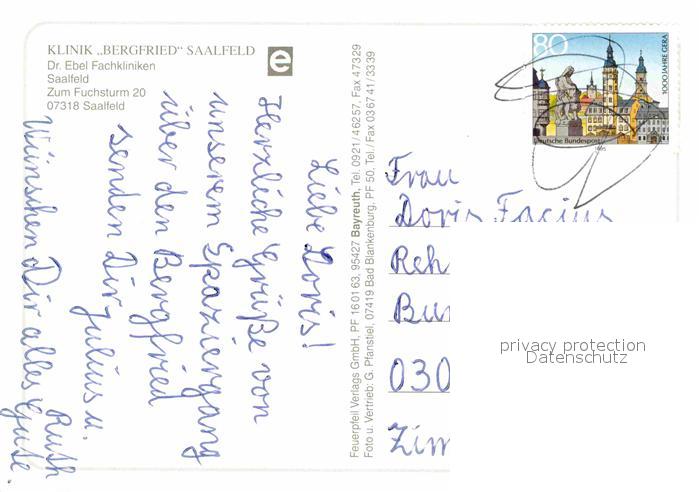 KLINIK „BERGFRIED" SAALFELD
Dr. Ebel Fachkliniken
Saalfeld
Zum Fuchsturm 20
07318 Saalfeld
e
Liebe Doris!
Herzliche Grüße von
unserem Spaziergang
über den Bergfried
senden Dir Julius u.
Ruth
Wünschen Dir alles Gute.
Feuerpfeil Verlags GmbH, PF 16 01 63, 95427 Bayreuth, Tel. 0921/46257, Fax 47329
Foto u. Vertrieb: G. Pfanstiel, 07419 Bad Blankenburg, PF 50, Tel./Fax 036741/3339
80
1000 JAHRE GERA
Deutsche Bundespost
1995
Frau
Doris Facius
Reh
Bu
030
Zim
privacy protection
Datenschutz